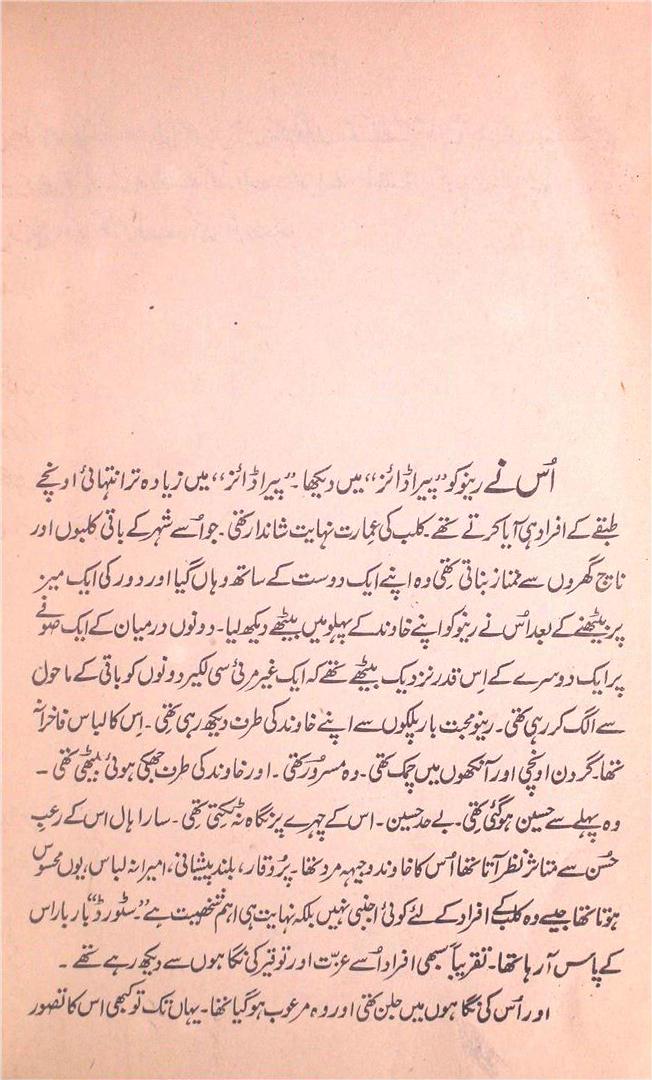 اُس نے رینو کو ”پیراڈائز“ میں دیکھا۔ ”پیراڈائز“ میں زیادہ تر انتہائی اونچے
طبقے کے افراد ہی آیا کرتے تھے۔ کلب کی عمارت نہایت شاندار تھی۔ جو اُسے شہر کے باقی کلبوں اور
ناچ گھروں سے ممتاز بناتی تھی وہ اپنے ایک دوست کے ساتھ وہاں گیا اور دور کی ایک میز
پر بیٹھنے کے بعد اُس نے رینو کو اپنے خاوند کے پہلو میں بیٹھے دیکھ لیا۔ دونوں درمیان کے ایک صوفے
پر ایک دوسرے کے اِس قدر نزدیک بیٹھے تھے کہ ایک غیر مرئی سی لکیر دونوں کو باقی کے ماحول
سے الگ کر رہی تھی۔ رینو محبت بار پلکوں سے اپنے خاوند کی طرف دیکھ رہی تھی۔ اِس کا لباس فاخرانہ
تھا۔ گردن اونچی اور آنکھوں میں چمک تھی۔ وہ مسرُور تھی۔ اور خاوند کی طرف جھکی ہوئی بیٹھی تھی ۔
وہ پہلے سے حسین ہو گئی تھی۔ بے حد حسین۔ اس کے چہرے پر نگاہ نہ ٹکتی تھی۔ سارا ہال اس کے رعبِ
حُسن سے متاثر نظر آتا تھا اُس کا خاوند وجیہہ مرد تھا۔ پُر وقار، بلند پیشانی، امیرانہ لباس، یوں محسوس
ہوتا تھا جیسے وہ کلب کے افراد کے لئے کوئی اجنبی نہیں بلکہ نہایت ہی اہم شخصیت ہے ”سٹورڈ“ بار بار اس
کے پاس آ رہا تھا۔ تقریباً سبھی افراد اُسے عزت اور توقیر کی نگاہوں سے دیکھ رہے تھے ۔
اور اُس کی نگاہوں میں جلن تھی اور وہ مرعوب ہو گیا تھا۔ یہاں تک تو کبھی اس کا تصور